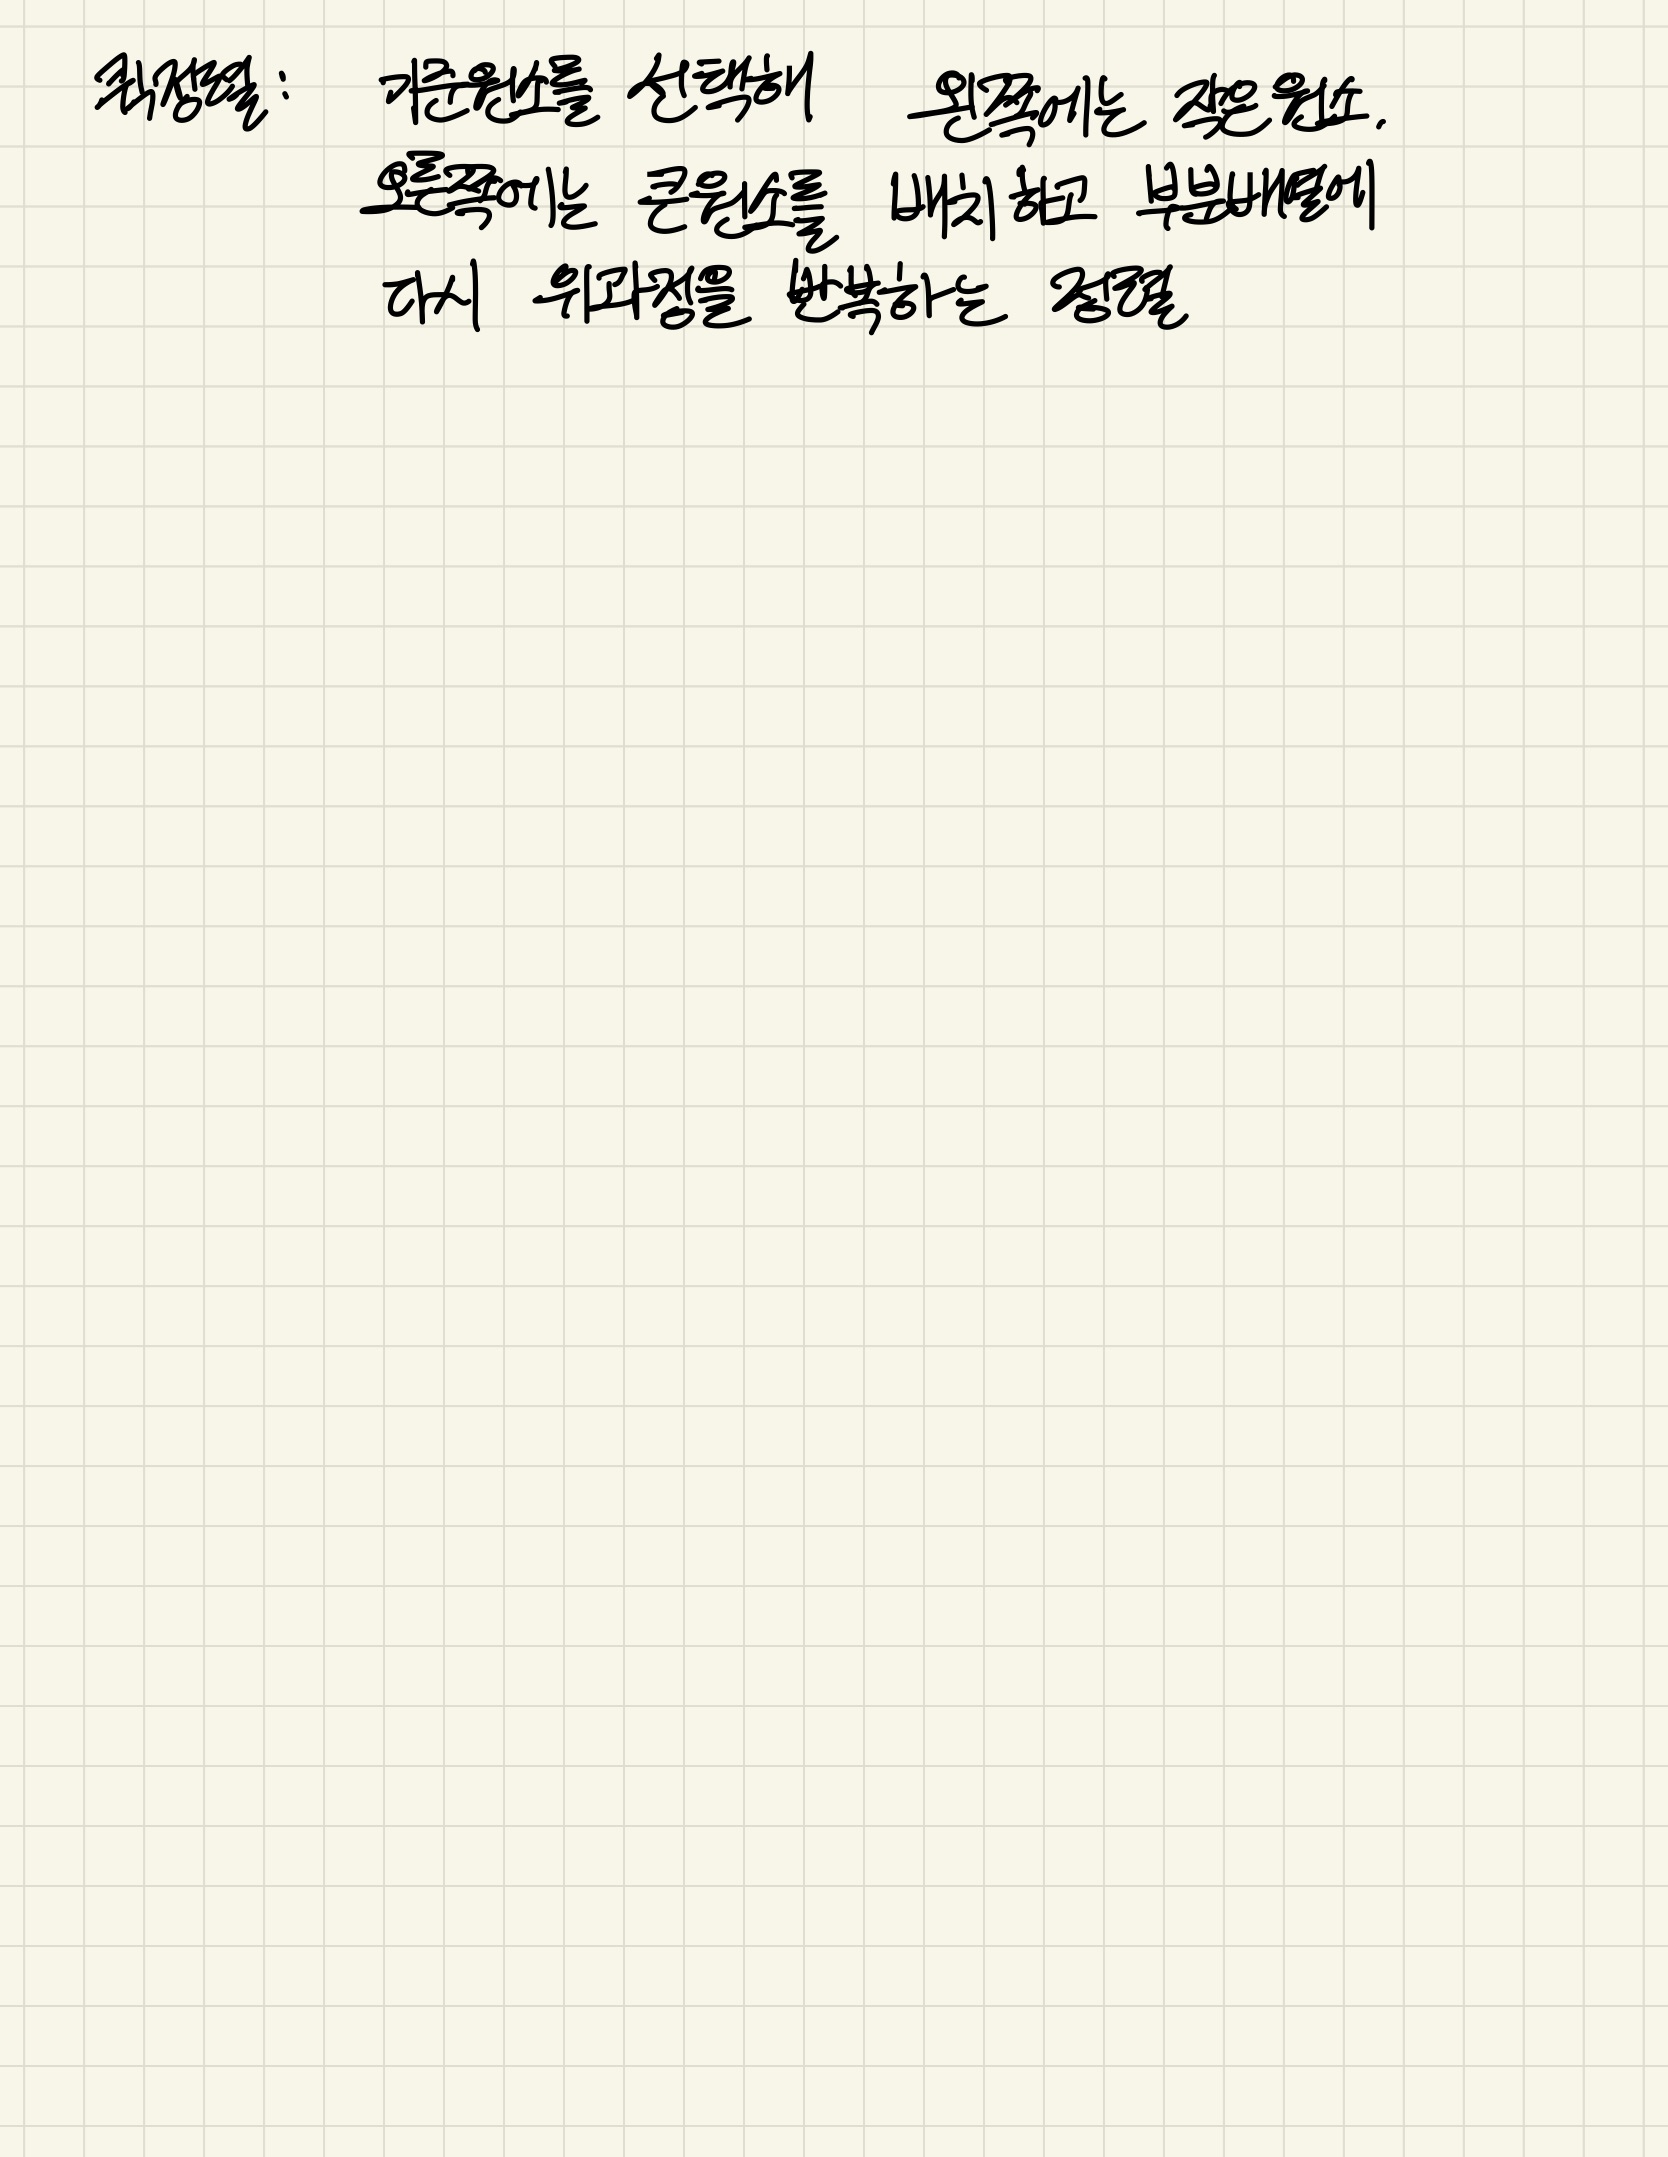 퀵정렬: 기준원소를 선택해 왼쪽에는 작은원소.
오른쪽에는 큰원소를 배치하고 부분배열에
다시 위과정을 반복하는 정렬